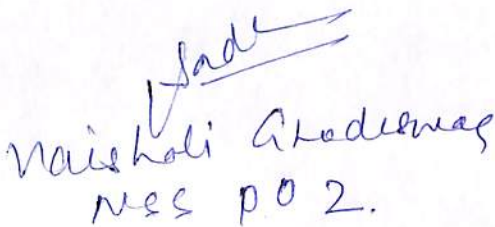 Vaishali Ghodeswar
NSS PO 2.